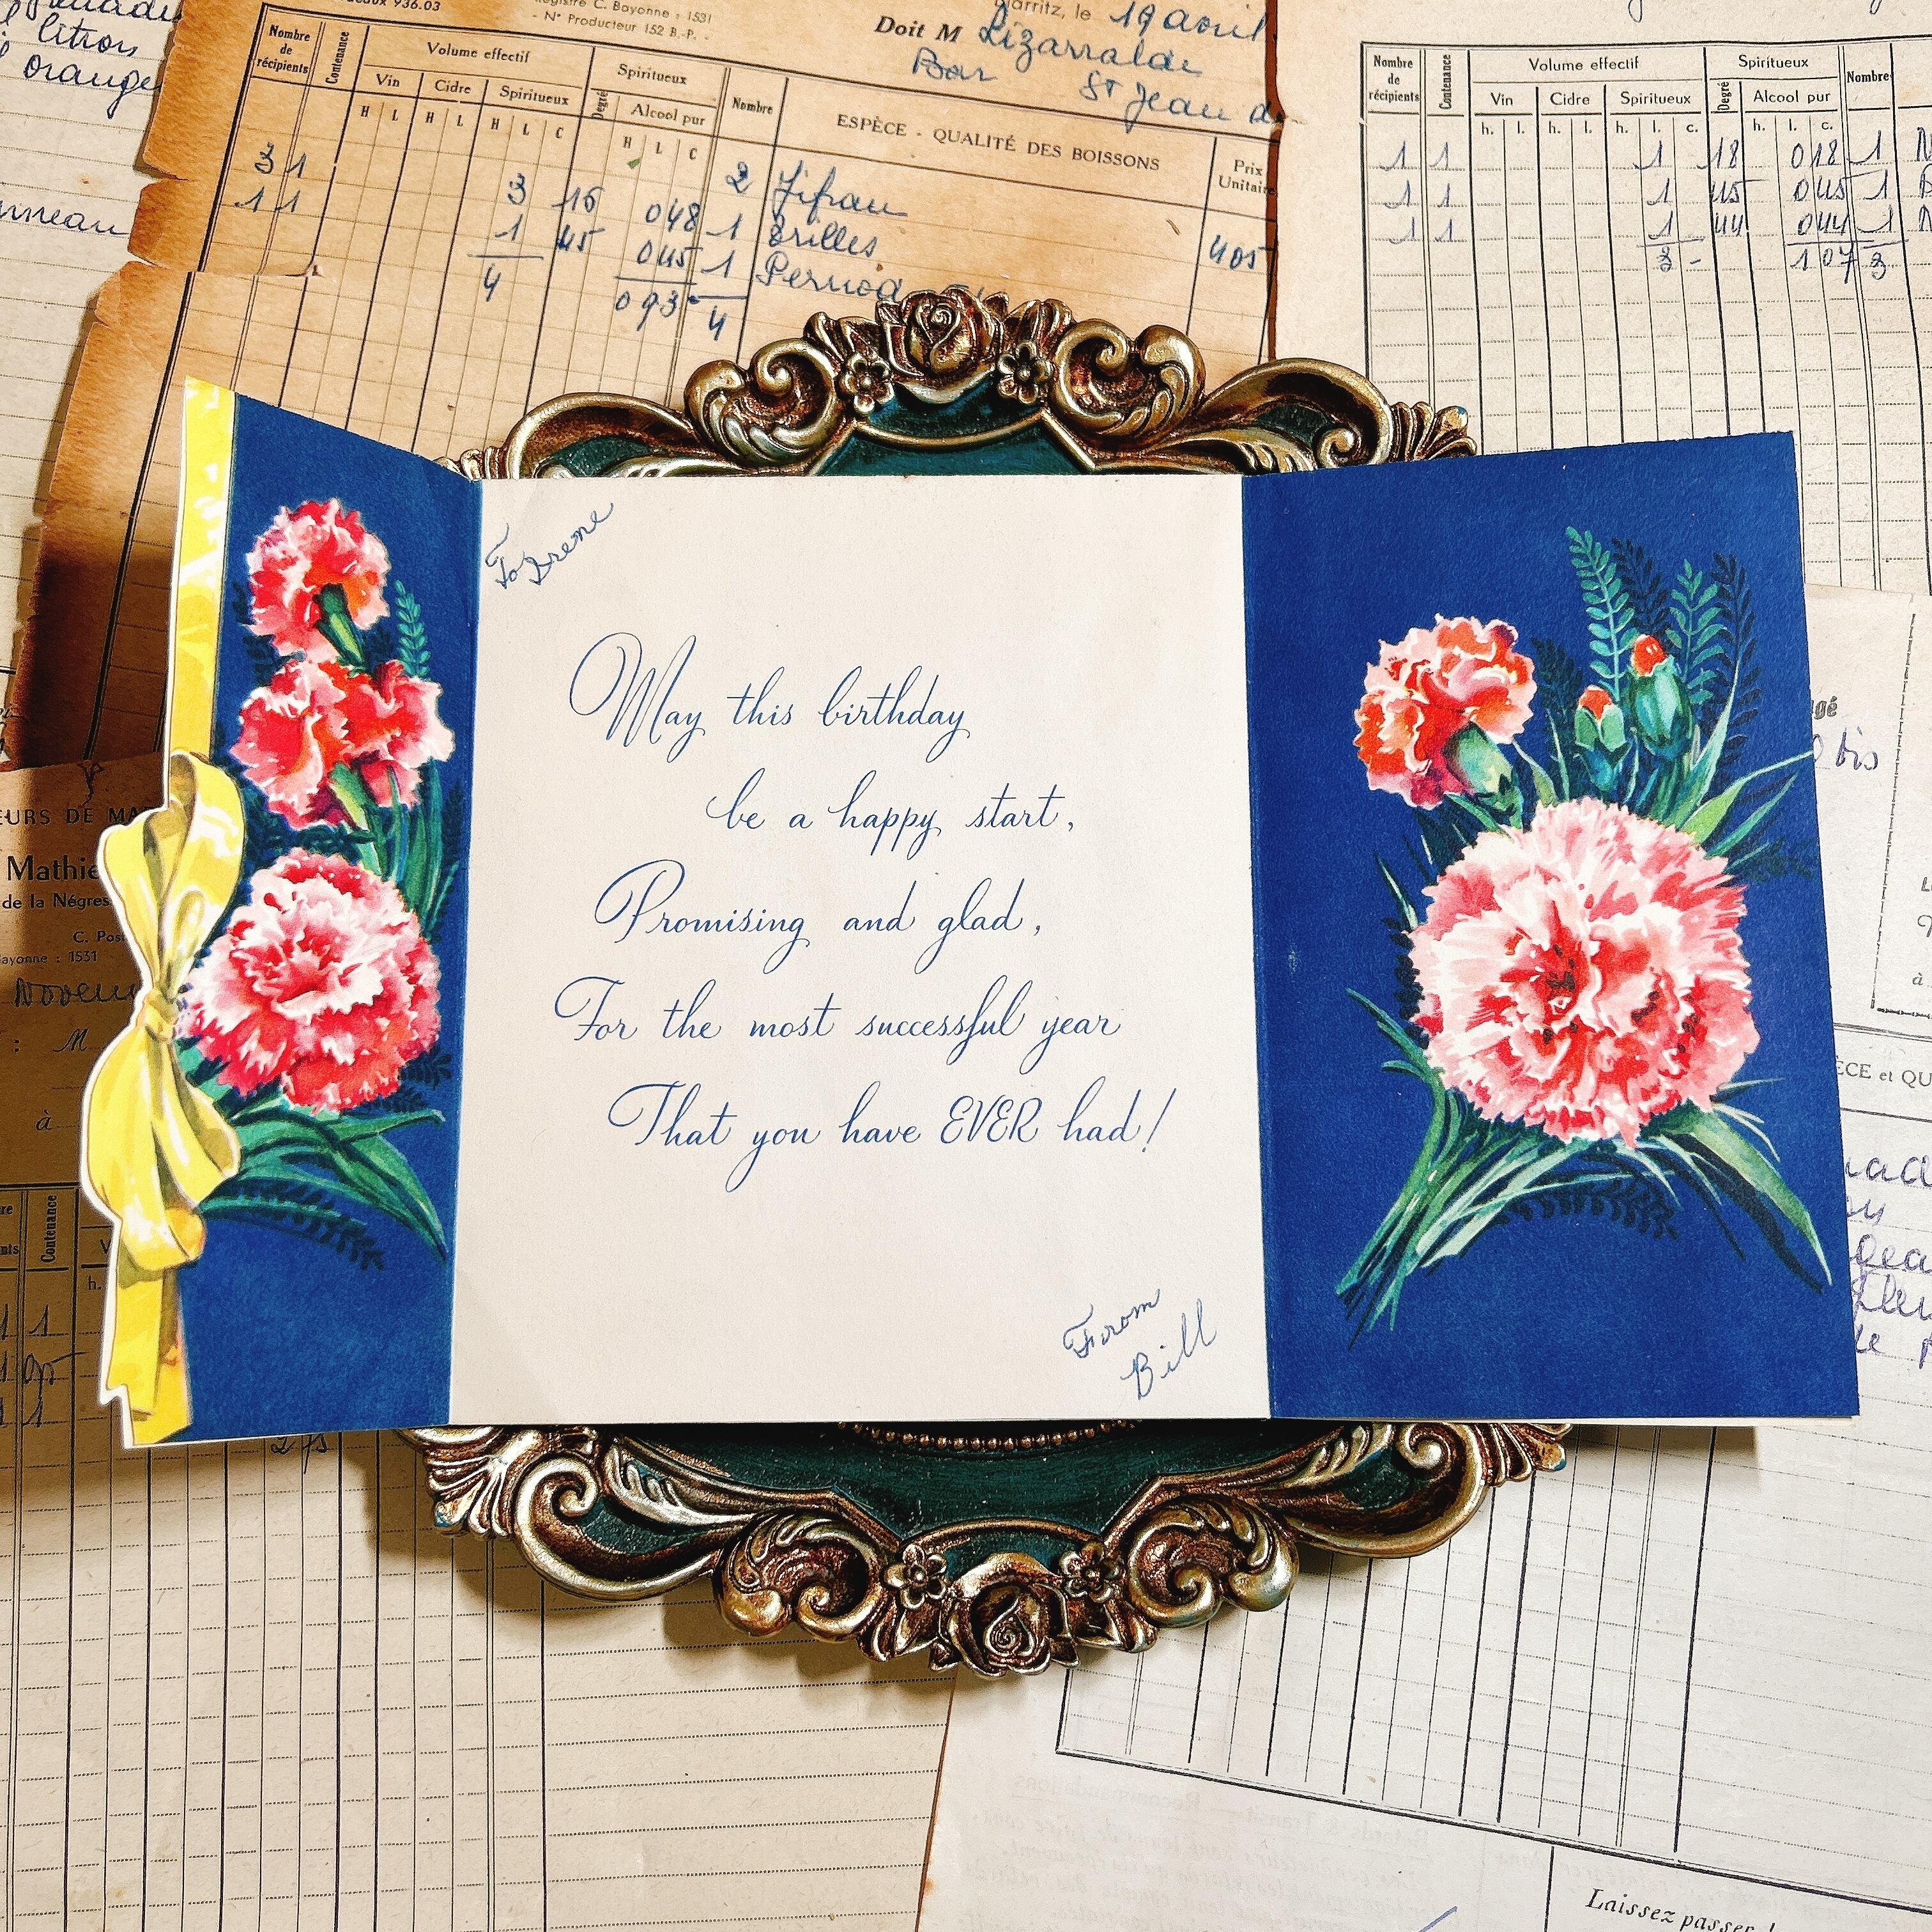 litron
orange
936.03
C. Bayonne : 1531
- N° Producteur 152 B.-P. -
le 19 avril
Doit M Lizarralde
Bar
St Jean de
Nombre de récipients
Contenance
Volume effectif
Vin
Cidre
Spiritueux
Degré
Spiritueux
Alcool pur
Nombre
ESPÈCE - QUALITÉ DES BOISSONS
Prix Unitaire
H L H L H L C H L C
3 1 3 16 048 2
1 1 1 45 045 1 405
4 093 1 Pernod
4
Nombre de récipients
Contenance
Volume effectif
Vin
Cidre
Spiritueux
Degré
Spiritueux
Alcool pur
Nombre
h. l. h. l. h. l. c. h. l. c.
1 1 1 18 018 1
1 1 1 45 045 1
1 1 1 44 044 1
3 - 107 3
To Irene
May this birthday
be a happy start,
Promising and glad,
For the most successful year
That you have EVER had!
From
Bill
Mathie
de la Négres
C. Post
ayonne : 1531
: M
à
Contenance
h.
bis
à
ÈCE et QU
Laissez passer !